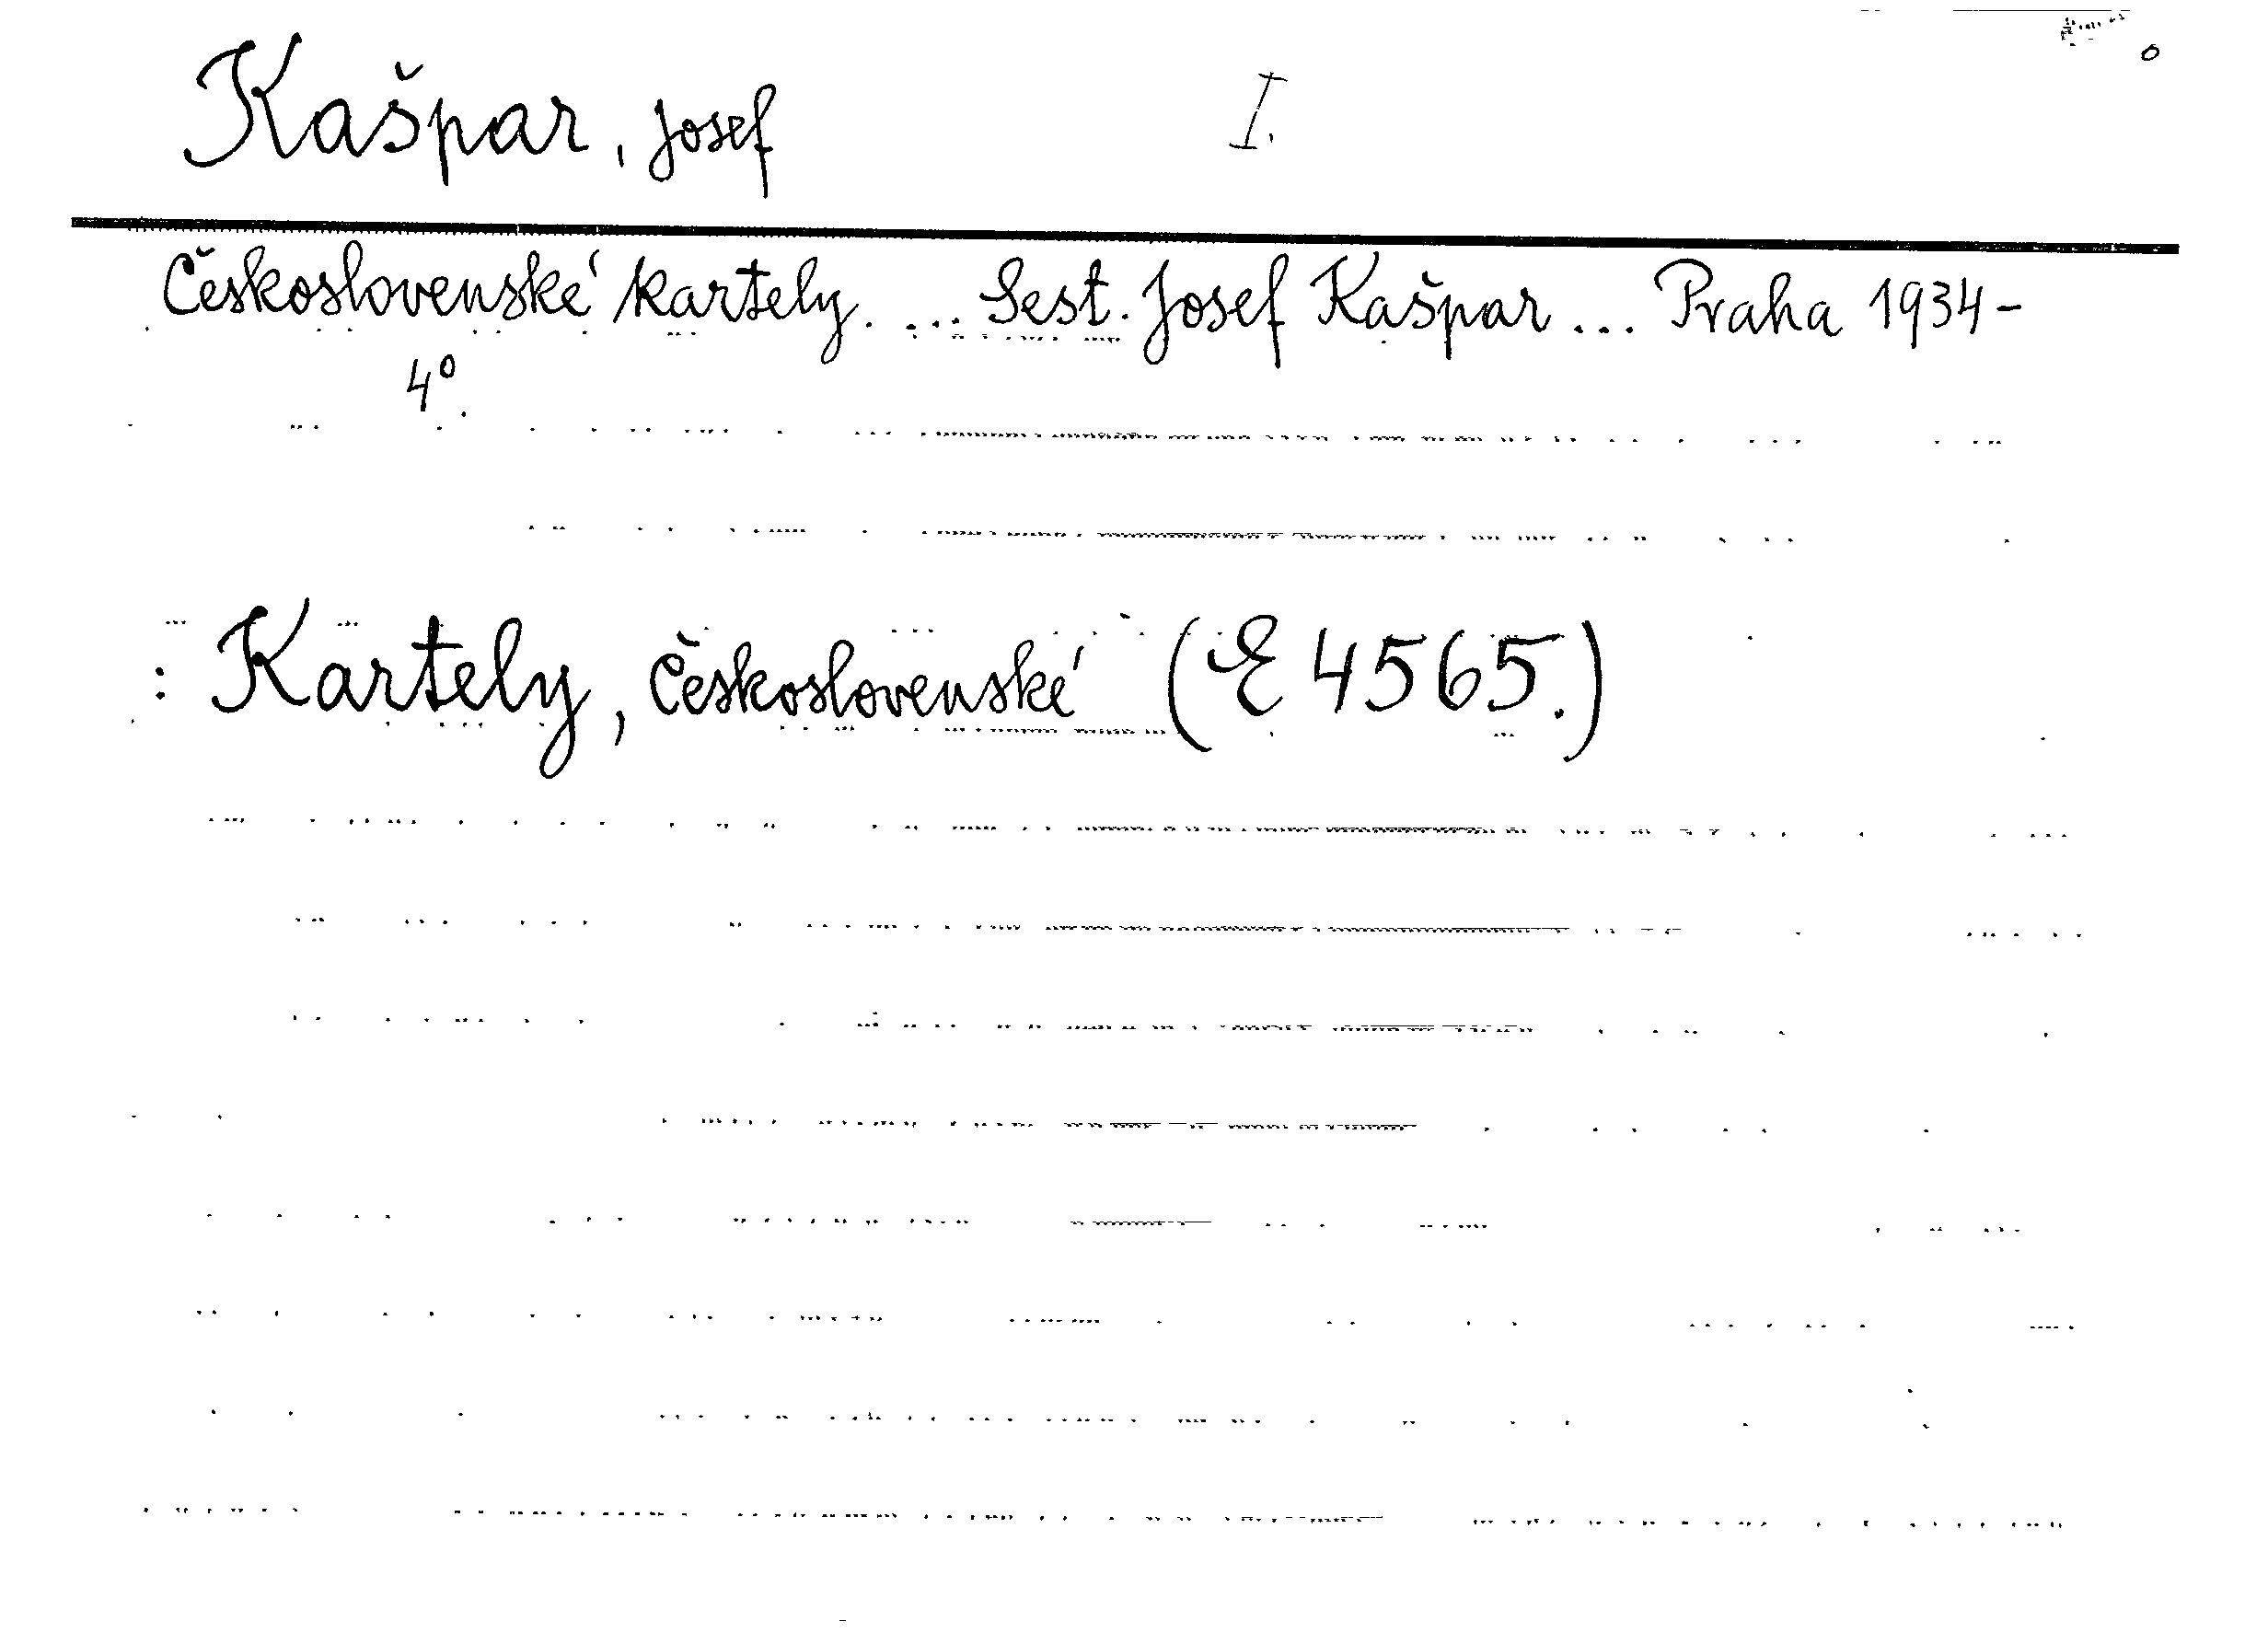 Kašpar, Josef I.
Československé kartely. ... Sest. Josef Kašpar ... Praha 1934-
4°.
: Kartely, československé (E 4565.)